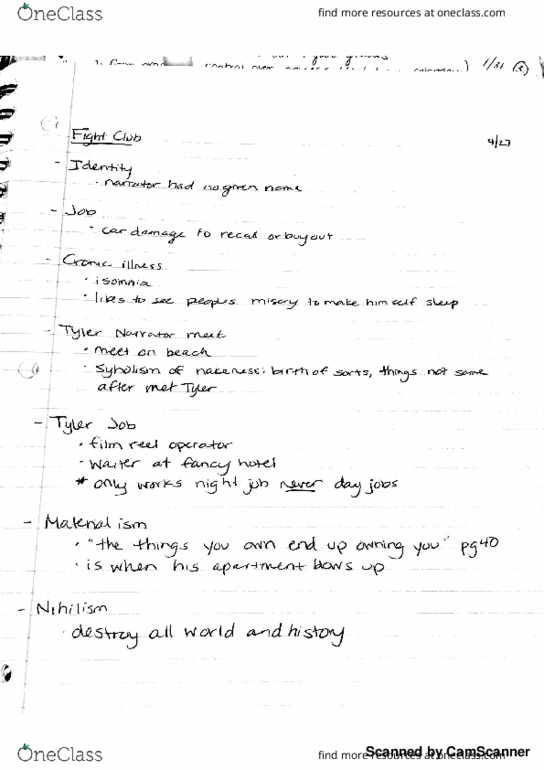 OneClass
find more resources at oneclass.com
control over
1/31 (3)
Fight Club
4/27
- Identity
· narrator had no given name
- Job
· car damage to recal or buyout
- Cronic illness
· isomnia
· likes to see peoples misery to make himself sleep
- Tyler Narrator meet
· meet on beach
· Sybolism of nakeness: birth of sorts, things not same
after met Tyler
- Tyler Job
· film reel operator
· waiter at fancy hotel
* only works night job never day jobs
- Materialism
· "the things you own end up owning you" pg40
· is when his apartment blows up
- Nihilism
· destroy all world and history
OneClass
find more resources at oneclass.com
Scanned by CamScanner